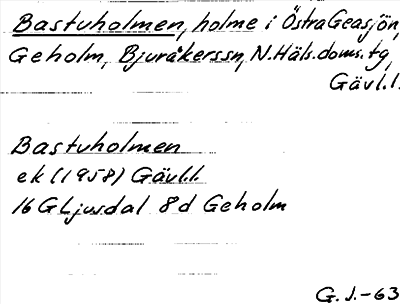 Bastuholmen, holme i Östra Geasjön,
Geholm, Bjuråkerssn, N.Häls.doms.tg,
Gävl.l.
Bastuholmen
ek (1958) Gävl.l.
16 G Ljusdal 8d Geholm
G.J.-63